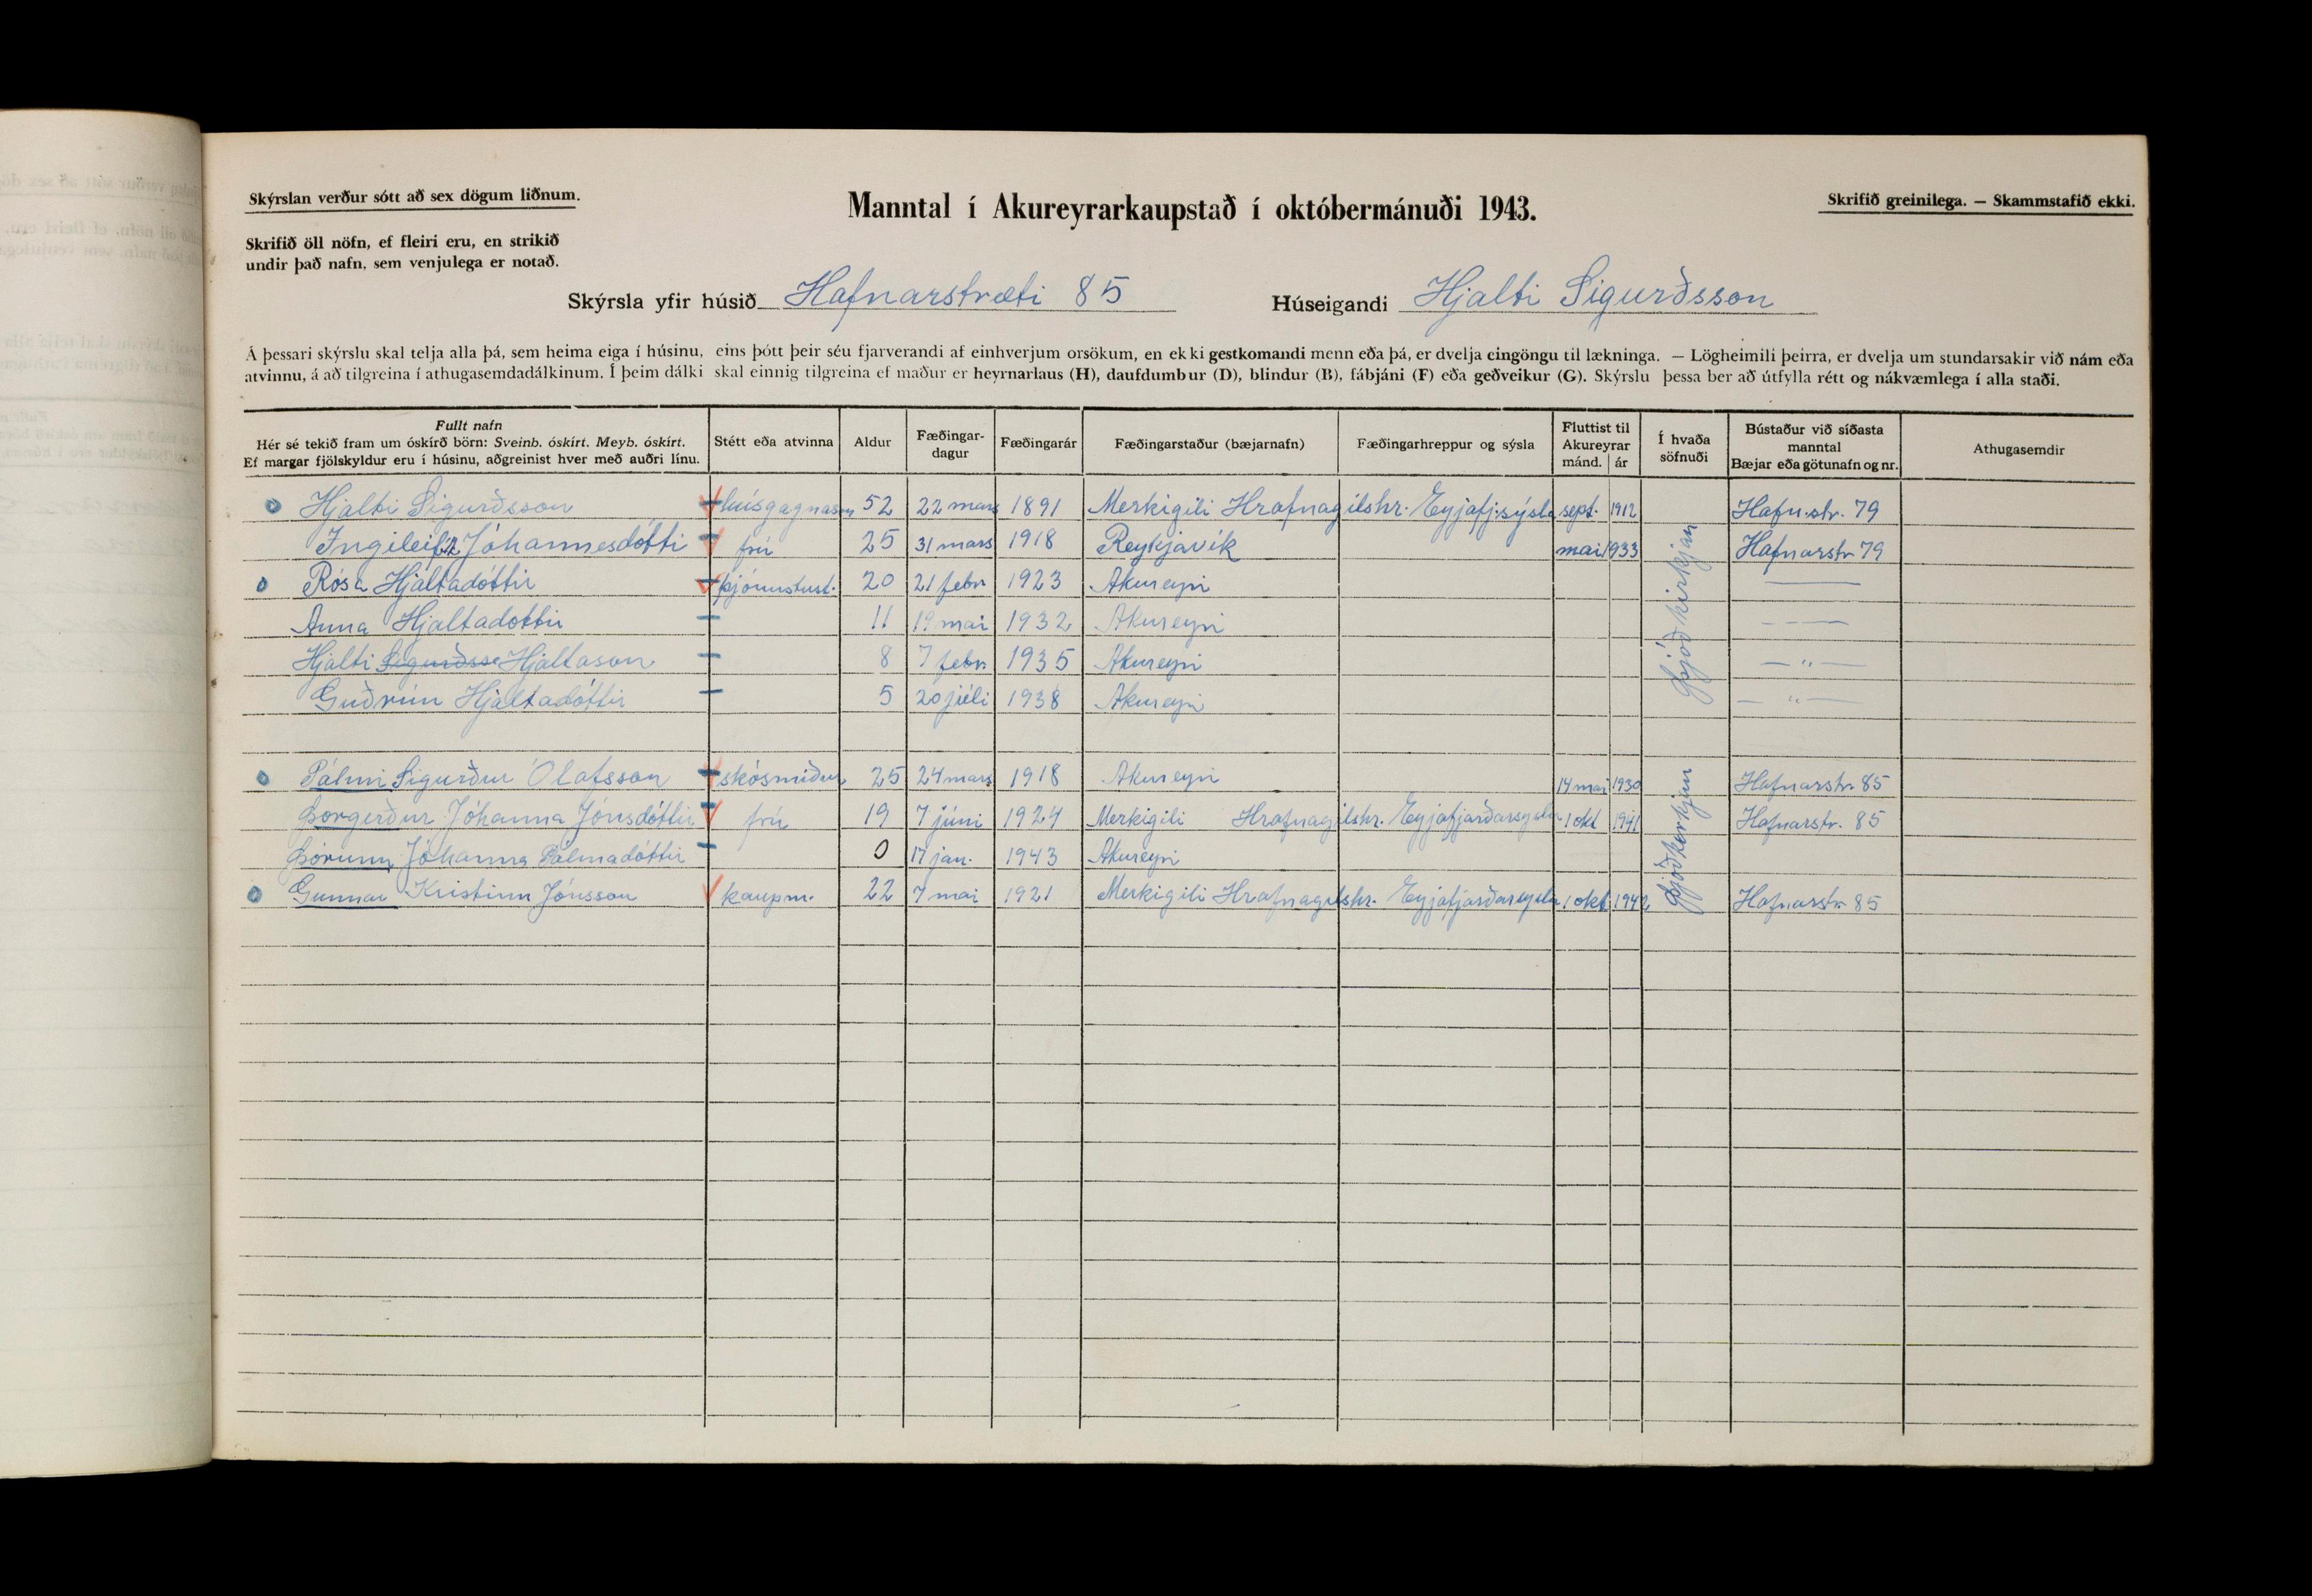 Skýrslan verður sótt að sex dögum liðnum.
Manntal í Akureyrarkaupstað í októbermánuði 1943.
Skrifið greinilega. — Skammstafið ekki.
Skrifið öll nöfn, ef fleiri eru, en strikið
undir það nafn, sem venjulega er notað.
Skýrsla yfir húsið Hafnarstræti 85 Húseigandi Hjalti Sigurðsson
Á þessari skýrslu skal telja alla þá, sem heima eiga í húsinu, eins þótt þeir séu fjarverandi af einhverjum orsökum, en ekki gestkomandi menn eða þá, er dvelja eingöngu til lækninga. — Lögheimili þeirra, er dvelja um stundarsakir við nám eða
atvinnu, á að tilgreina í athugasemdadálkinum. Í þeim dálki skal einnig tilgreina ef maður er heyrnarlaus (H), daufdumbur (D), blindur (B), fábjáni (F) eða geðveikur (G). Skýrslu þessa ber að útfylla rétt og nákvæmlega í alla staði.
Fullt nafn
Hér sé tekið fram um óskírð börn: Sveinb. óskírt. Meyb. óskírt.
Ef margar fjölskyldur eru í húsinu, aðgreinist hver með auðri línu.
Stétt eða atvinna
Aldur
Fæðingar-
dagur
Fæðingarár
Fæðingarstaður (bæjarnafn)
Fæðingarhreppur og sýsla
Fluttist til
Akureyrar
mánd. ár
Í hvaða
söfnuði
Bústaður við síðasta
manntal
Bæjar eða götunafn og nr.
Athugasemdir
Hjalti Sigurðsson húsgagnasm 52 22 mars 1891 Merkigili Hrafnagilshr. Eyjafj.sýsla sept. 1912 Hafn.str. 79
Ingileif Jóhannesdótti frú 25 31 mars 1918 Reykjavík mai 1933 Hafnarstr 79
Rósa Hjaltadóttir þjónustust. 20 21 febr 1923 Akureyri ——
Anna Hjaltadottir 11 19 mai 1932 Akureyri — — —
Hjalti Sigurðsso Hjaltason 8 7 febr 1935 Akureyri — " —
Guðrún Hjaltadóttir 5 20 júlí 1938 Akureyri — " —
Þjóðkirkjan
Pálmi Sigurður Ólafsson skósmiður 25 24 mars 1918 Akureyri 14 mai 1930 Hafnarstr. 85
Þorgerður Jóhanna Jónsdóttir frú 19 7 júni 1924 Merkigili Hrafnagilshr. Eyjafjarðarsysla 1 okt 1941 Hafnarstr. 85
Þórunn Jóhanna Pálmadóttir 0 17 jan. 1943 Akureyri
Gunnar Kristinn Jónsson kaupm. 22 7 mai 1921 Merkigili Hrafnagilshr. Eyjafjarðarsysla 1 okt 1942 Hafnarstr 85
Þjóðkirkjan